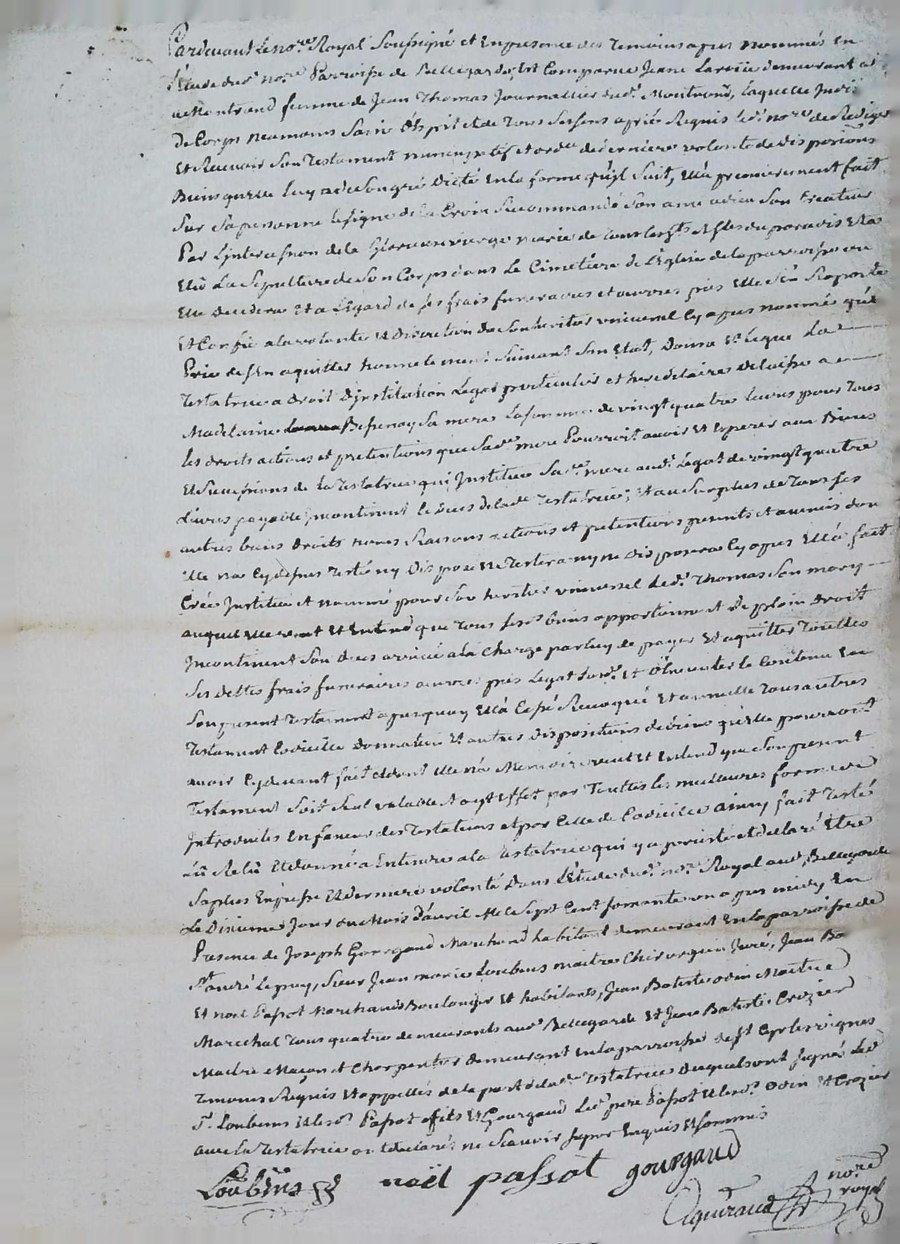 Pardevant Le no.re Royal Soussigné et En presence des Temoins apres Nommés En
l'Etude dud. no.re Parroisse de Bellegarde, Est Comparue Jeane demeurant a
Montrond femme de Jean Thomas Journallier dud. Montrond, laquelle
De Corps neanmoins Saine d'Esprit et de Tous Ses Sens a prié Requis led. no.re de Rediger
Et Recevoir Son Testament nuncupatif et ord.re de derniere volonté de disposition
qu'elle luy a de Son gré Dicté En la forme qu'il Suit, Ella premierement fait
Sur Sa personne le Signe de la Croix Recommandé Son ame a dieu Son Createur
Par L'intercession de la Glorieuse vierge marie de tous les S.ts et S.tes du paradis Ella
Elû La Sepulture de Son Corps dans Le Cimetière de L'Eglise de la parroisse ou
Elle Decedera Et a L'Egard de Ses frais funeraires et œuvres pies Elle S'En Raporte
Et Confie a la volonté Et Discretion de Son heritier universel Cy apres nommé qu'Elle
Prie de S'En aquitter honnetement Suivant Son Etat, Donne Et Legue La
Testatrice a droit D'institution Legat particulier et hereditaire Delaisse a
Madelaine Besenay Sa mere La Somme de vingt quatre Livres pour Tous
les droits actions et pretentions que Sad. mere Pourroit avoir Et Esperer aux Biens
Et Successions de La Testatrice qui Institue Sad. mere aud. Legat de vingt quatre
Livres payable incontinent le deces de lad. Testatrice; Et au Surplus de Tous Ses
autres biens Droits noms Raisons actions Et pretentions presents Et avenir don
Elle na Cy dessus Testé ny Disposé ne Testera ny ne disposera Cy apres Ella fait
Crée Institué et nommé pour Son heritier universel led. Thomas Son mary
auquel Elle veut Et Entend que Tous Sesd. biens appartiennent De plein Droit
Incontinent Son deces arrivé a la Charge par luy de payer Et aquitter Toutes
Ses dettes frais funeraires œuvres pies Legat Susd. Et D'Executer le Contenu En
Son present Testament apres quoy Ella Cassé Revoqué Et annullé Tous autres
Testament Codicille Donnation Et autres Dispositions qu'Elle pourroit
avoir Cy devant fait Et dont Elle n'a Memoire veut Et Entend que Son present
Testament Soit Seul valable Et ayt Effet par Toutes les meilleures formes de
Introduites En faveur des Testateurs et par Celle de Codicille ainsy fait Testé
Lû Relû Et donné a Entendre a la Testatrice qui y a persisté et declaré Etre
Sa plus Expresse Et derniere volonté Dans L'Etude dud. no.re Royal aud. Bellegarde
Le Dixieme Jour du Mois D'avril Mil Sept Cent Soixante un apres midy En
Presence de Joseph Gourgaud Marchand habitant demeurant En la parroisse de
S.t André Le puy, Sieur Jean marie Loubens maitre Chirurgien Juré, Jean Ba
Et noël Passot Marchands Boulanger Et habitants, Jean Batiste odin Maitre
Marechal Tous quatre demeurants aud. Bellegarde Et Jean Batiste Crozier
Maitre Maçon et Charpentier demeurant En la parroisse de S.t Cyr les vignes
Temoins Requis Et appellés de la part de lad. Testatrice desquels ont Signé Led.
S.r Loubens Passot fils Et Gourgaud Led. pere Passot Odin Et Crozier
avec La Testatrice ont declaré ne Scavoir Signer Enquis Et Sommés
Loubens noël passot gourgaud
no.re royal